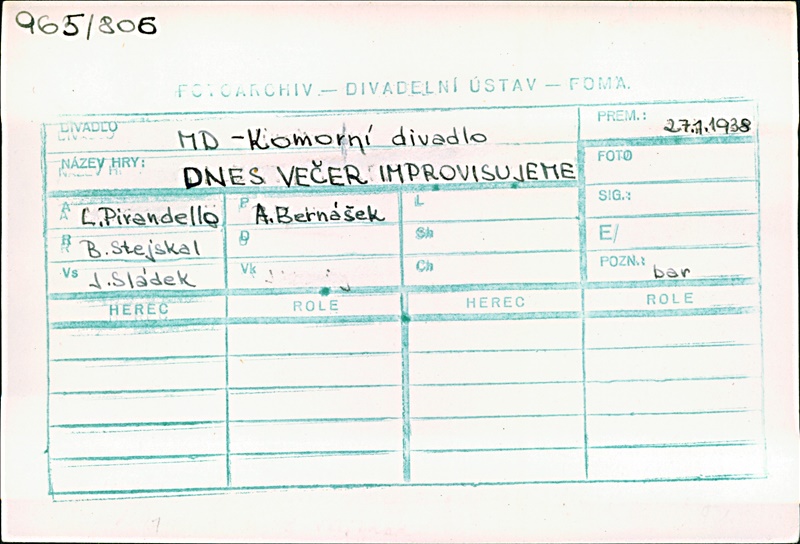 965/806
FOTOARCHIV — DIVADELNÍ ÚSTAV — FOMA.
DIVADLO MD - Komorní divadlo
PREM.: 27.1.1938
NÁZEV HRY: DNES VEČER IMPROVISUJEME
FOTO
A L. Pirandello P A. Bernášek L
SIG.:
R B. Stejskal D Sh
E/
Vs J. Sládek Vk Ch
POZN.: bar
HEREC ROLE HEREC ROLE